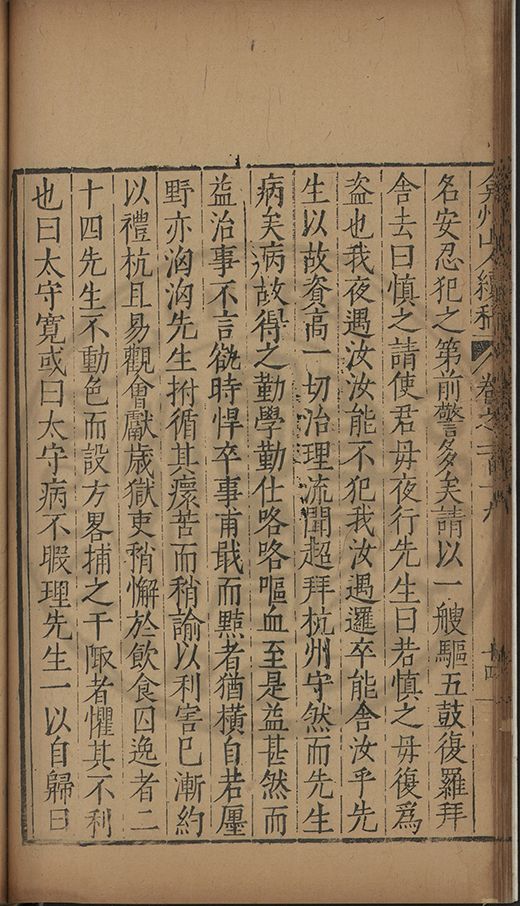 弇州山人續稿 卷之一百一十九 十四
名安忍犯之第前警多矣請以一艘驅五鼓復羅拜
舍去曰慎之請使君毋夜行先生曰若慎之毋復爲
盗也我夜遇汝汝能不犯我汝遇邏卒能舍汝乎先
生以故資高一切治理流聞超拜杭州守然而先生
病矣病故得之勤學勤仕咯咯嘔血至是益甚然而
益治事不言時悍卒事甫戢而黠者猶橫自若廛
野亦洶洶先生拊循其瘝苦而稍諭以利害已漸約
以禮杭且易觀會獻歲獄吏稍懈於飲食囚逸者二
十四先生不動色而設方畧捕之干陬者懼其不利
也曰太守寬或曰太守病不暇理先生一以自歸曰